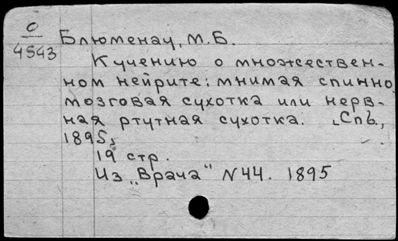 О
4543
Блюменау, М.Б.
К учению о множествен-
ном нейрите: мнимая спинно
мозговая сухотка или нерв-
ная ртутная сухотка. СпЬ,
1895,
19 стр.
Из „Врача" N44. 1895